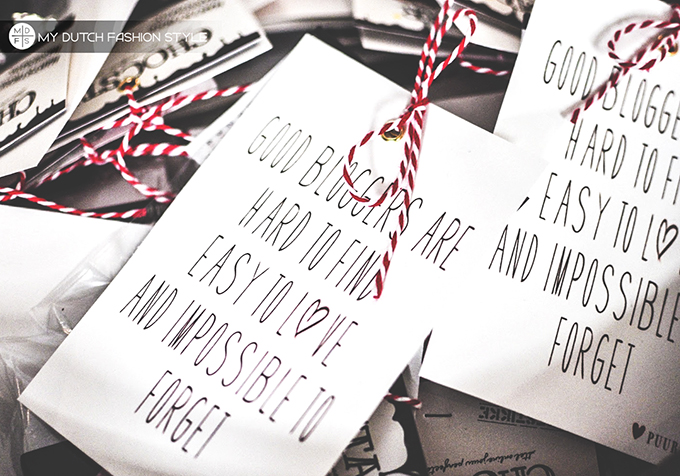 MD
FS
MY DUTCH FASHION STYLE
GOOD BLOGGERS ARE
HARD TO FIND
EASY TO L♡VE
AND IMPOSSIBLE TO
FORGET
GOOD BLOGGE
HARD TO FI
EASY TO L♡
AND IMPOSSIBLE
FORGET
♥ PUUR